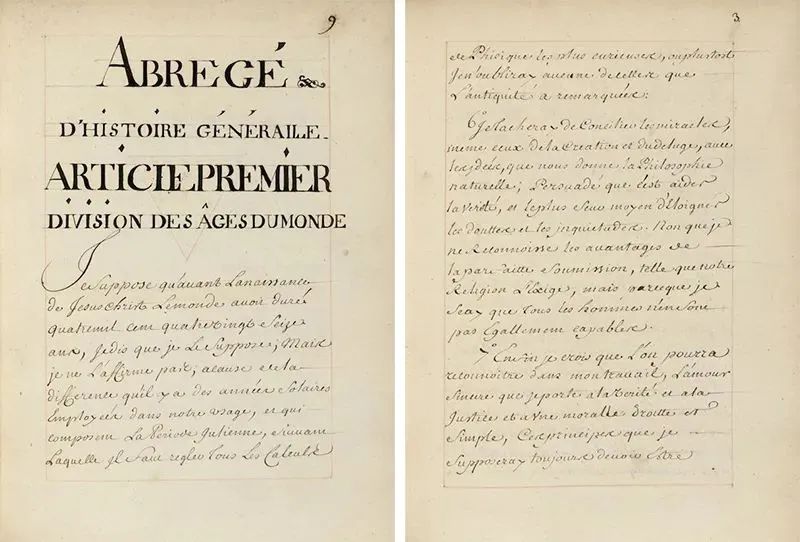 9
ABREGÉ
D'HISTOIRE GÉNÉRAILE.
ARTICIE PREMIER
DIVISION DES ÂGES DU MONDE
Je Suppose qu'avant La naissance
de Jesus Christ Le monde avoit duré
quatremil cent quatrevingt Seize
ans, Je dis que je Le Suppose; Mais
je ne L'affirme pas; a cause de la
difference qu'il y a des années Solaires
Employées dans notre usage, et qui
composent La Période Julienne, Suivant
Laquelle Il faut regler tous Les Calculs
3
de Phisique les plus curieuses, ou plustost
Je n'oubliray aucune de celles que
L'antiquité a remarquées:
6.º Je tacheray de Concilier les miracles,
meme ceux de la Creation et du deluge, avec
les idées, que nous donne la Philosophie
naturelle; Persuadé que c'est aider
la verité, et le plus Seur moyen d'Eloigner
les douttes et les inquietudes. Non que je
ne Reconnoisse les avantages de
la parfaitte Soumission, telle que notre
Religion L'Exige, mais parceque je
Scay que tous les hommes n'en Sont
pas Egallement capables.
7.º Enfin je crois que L'on pourra
reconnoitre dans mon travail, L'amour
Sincere que je porte a la Verité et a la
Justice et a une moralle droitte et
Simple, Ces principes que je
Supposeray toujours devoir Estre